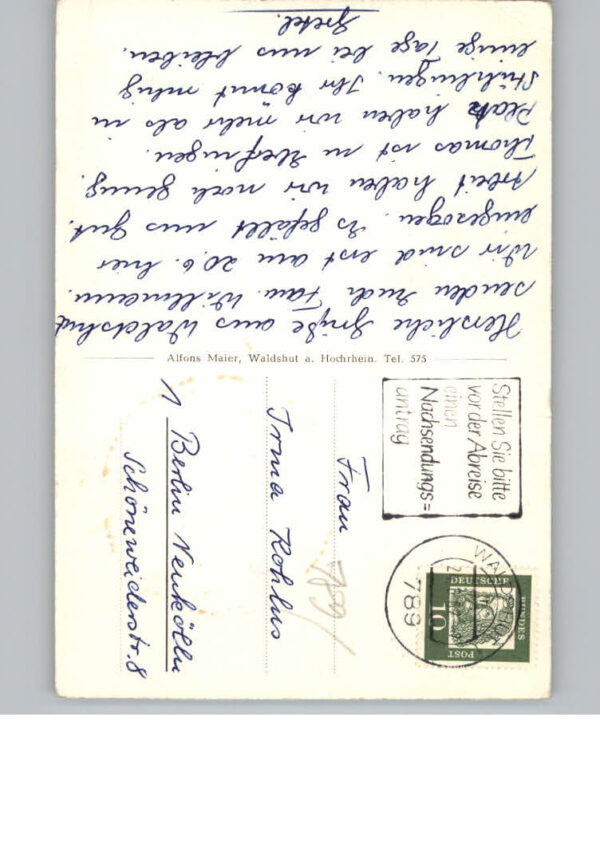 Herzliche Grüße aus Waldshut
senden Euch Fam. Willmann.
Wir sind erst am 20.6. hier
eingezogen. Es gefällt uns gut.
Arbeit haben wir noch genug.
Thomas ist in
Platz haben wir mehr als in
Stühlingen. Ihr könnt ruhig
einige Tage bei uns bleiben.
Gretel.
Alfons Maier, Waldshut a. Hochrhein. Tel. 575
Stellen Sie bitte
vor der Abreise
einen
Nachsendungs=
antrag
WALDSHUT
789
DEUTSCHE
BUNDES
POST
10
Frau
Irma Kohlus
1 Berlin Neukölln
Schöneweiderstr. 8
789/